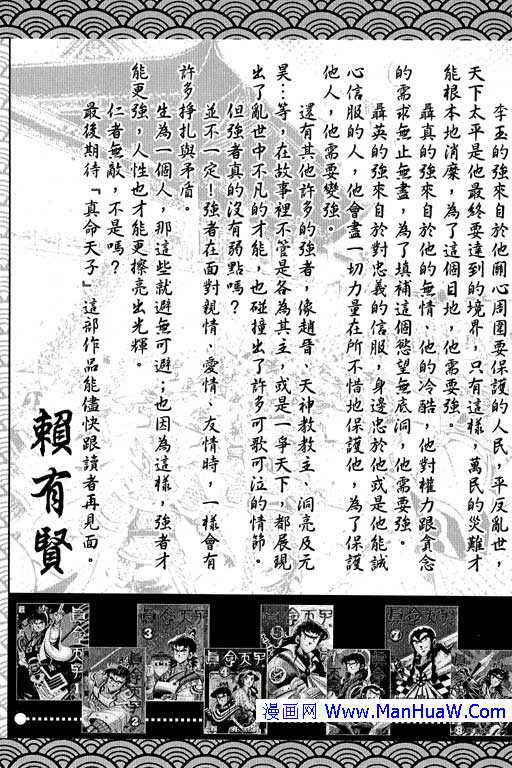 李玉的強來自於他關心周圍要保護的人民，平反亂世，
天下太平是他最終要達到的境界，只有這樣，萬民的災難才
能根本地消糜，為了這個目地，他需要強。
聶真的強來自於他的無情、他的冷酷，他對權力跟貪念
的需求無止無盡，為了填補這個慾望無底洞，他需要強。
聶英的強來自於對忠義的信服，身邊忠於他或是他能誠
心信服的人，他會盡一切力量在所不惜地保護他，為了保護
他人，他需要變強。
還有其他許多的強者，像趙晉、天神教教主、洞亮及元
昊…等，在故事裡不管是各為其主，或是一爭天下，都展現
出了亂世中不凡的才能，也碰撞出了許多可歌可泣的情節。
但強者真的沒有弱點嗎？
並不一定！強者在面對親情、愛情、友情時，一樣會有
許多掙扎與矛盾。
生為一個人，那這些就避無可避；也因為這樣，強者才
能更強，人性也才能更擦亮出光輝。
仁者無敵，不是嗎？
最後期待『真命天子』這部作品能儘快跟讀者再見面。
賴有賢
真命天子
1
2
真命天子
3
真命天子
4
真命天子
5
真命天子
7
8
漫画网 www.ManHuaW.com